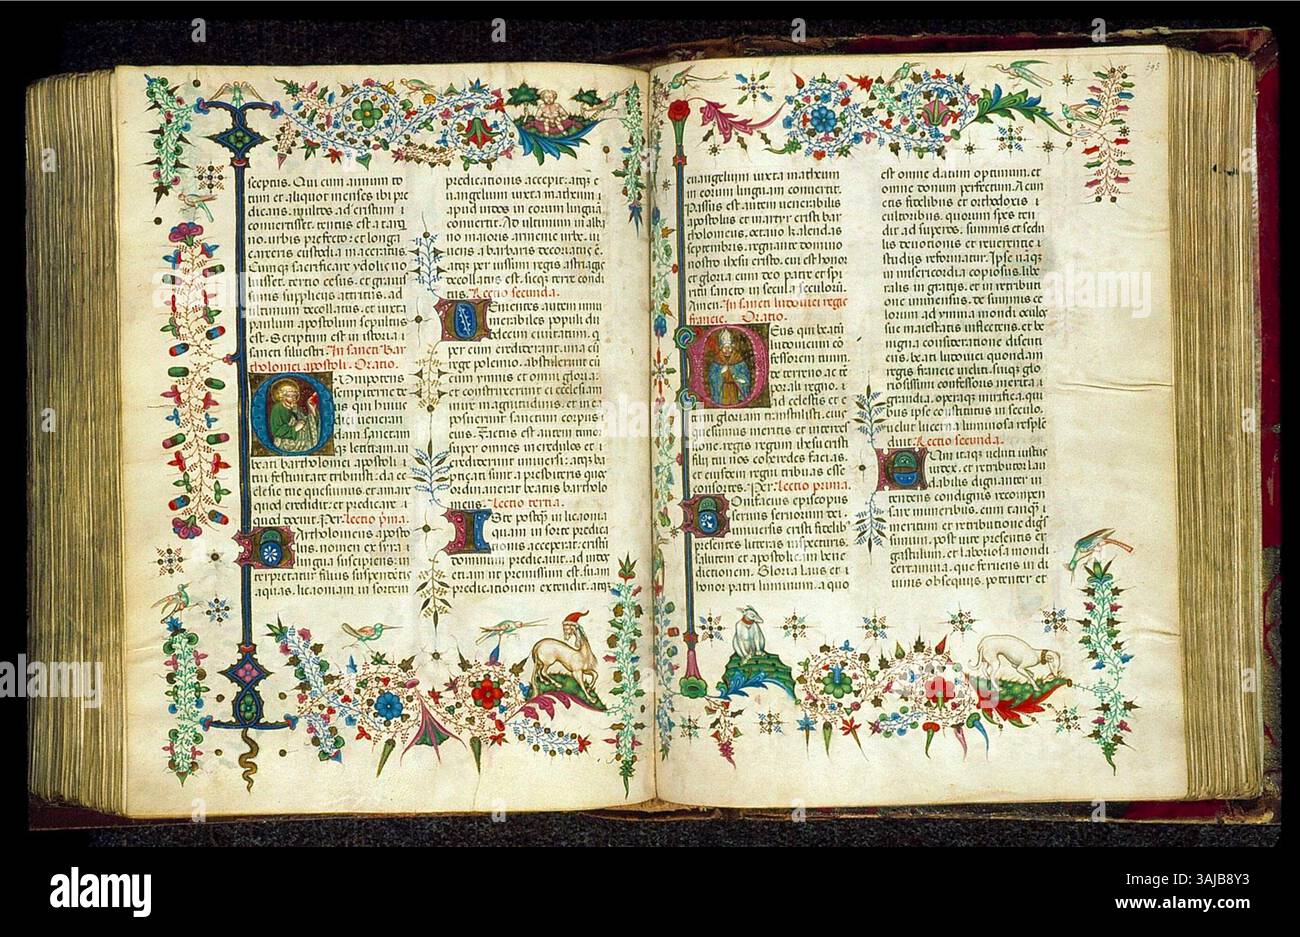 sceptus. Qui cum annum to
tum et aliquot menses ibi pre
dicans, multos ad cristum
convertisset, tentus est a tarq
no, urbis prefecto: et longa
carceris custodia maceratus
Cumque sacrificare ydolis no
luisset, tertio cesus, et gravi
simis suppliciis attritus, ad
ultimum decollatus, et iuxta
paulum apostolum sepultus
est. Scriptum est in istoria
sancti silvestri. In sancti Bar
tholomei apostoli. Oratio.
Omnipotens
sempiterne de
us qui huius
diem
dam sanctam
que letitiam, in
beati bartholomei apostoli
tui festivitate tribuisti, da ec
clesie tue quesumus, et amare
quod credidit: et predicare
quod docuit. Per. Lectio prima.
Bartholomeus aposto
lus, nomen ex siria
lingua suscipiens, in
terpretatur filius suspendetis
aquas, licaoniam in sortem
predicationis accepit: atque
evangelium iuxta matheum
apud indos in eorum lingua
convertit. Ad ultimum in alba
no maioris armenie urbe, vi
vens a barbaris decoriatus
atque per iussum regis astragis
decollatus est, sicque terre condi
Lectio secunda.
innu
merabiles populi du
decem civitatum,
per eum crediderant, una cum
rege polemio, abstulerunt
cum ymnis et omni gloria:
et construxerunt ei ecclesiam
mire magnitudinis, et in ea
posuerunt sanctum corpus
eius. Factus est autem timor
super omnes incredulos et
crediderunt universi: atque ba
ptizati sunt a presbiteris quos
ordinaverat beatus bartholo
meus. Lectio tertia.
Iste postquam in licaonia
quam in sorte predica
tionis acceperat, cristum
dominum predicavit, ad indos
etiam ut premissum est, suam
predicationem extendit, atque
evangelium iuxta matheum
in eorum linguam convertit.
Passus est autem venerabilis
apostolus et martyr cristi bar
tholomeus, octavo kalendas
septembris, regnante domino
nostro iesu cristo, cui est honor
et gloria cum deo patre et spi
ritu sancto in secula seculorum
Amen. In sancti ludovici regis
francie. Oratio.
Deus qui beatum
ludovicum con
fessorem tuum
de terreno ac te
porali regno,
ad celestis et e
terni gloriam transtulisti, eius
quesumus meritis et interces
sione, regis regum ihesu cristi
filii tui nos coheredes facias,
et eiusdem regni tribuas esse
consortes. Per. Lectio prima.
Bonifacius episcopus
servus servorum dei
universis cristi fidelibus
presentes litteras inspecturis,
salutem et apostolicam bene
dictionem. Gloria laus et
honor patri luminum, a quo
est omne datum optimum, et
omne donum perfectum. A cun
ctis fidelibus et orthodoxis
cultoribus, quorum spes ten
dit ad superos, summis et sedu
lis devotionis et reverentie
studiis reformatur. Ipse namque
in misericordia copiosus, libe
ralis in gratiis, et in retributi
one munificus, de summis et
ad ymma mundi oculos
sue maiestatis inflectens, et be
nigna consideratione discuti
ens, beati ludovici quondam
regis francie incliti, suique glo
riosissimi confessoris merita
grandia, operaque mirifica, qui
bus ipse constitutus in seculo,
velut lucerna luminosa resplen
duit. Lectio secunda.
Qui itaque veluti iustus
iudex, et retributor lau
dabilis dignanter in
tendens condignis recompen
sare muneribus, eum tanquam
meritum et retributione dignis
simum, post vite presentis er
gastulum, et laboriosa mondi
certamina, que ferviens in di
vinis obsequiis, potenter et
595
alamy
Image ID: 3AJB8Y3
www.alamy.com